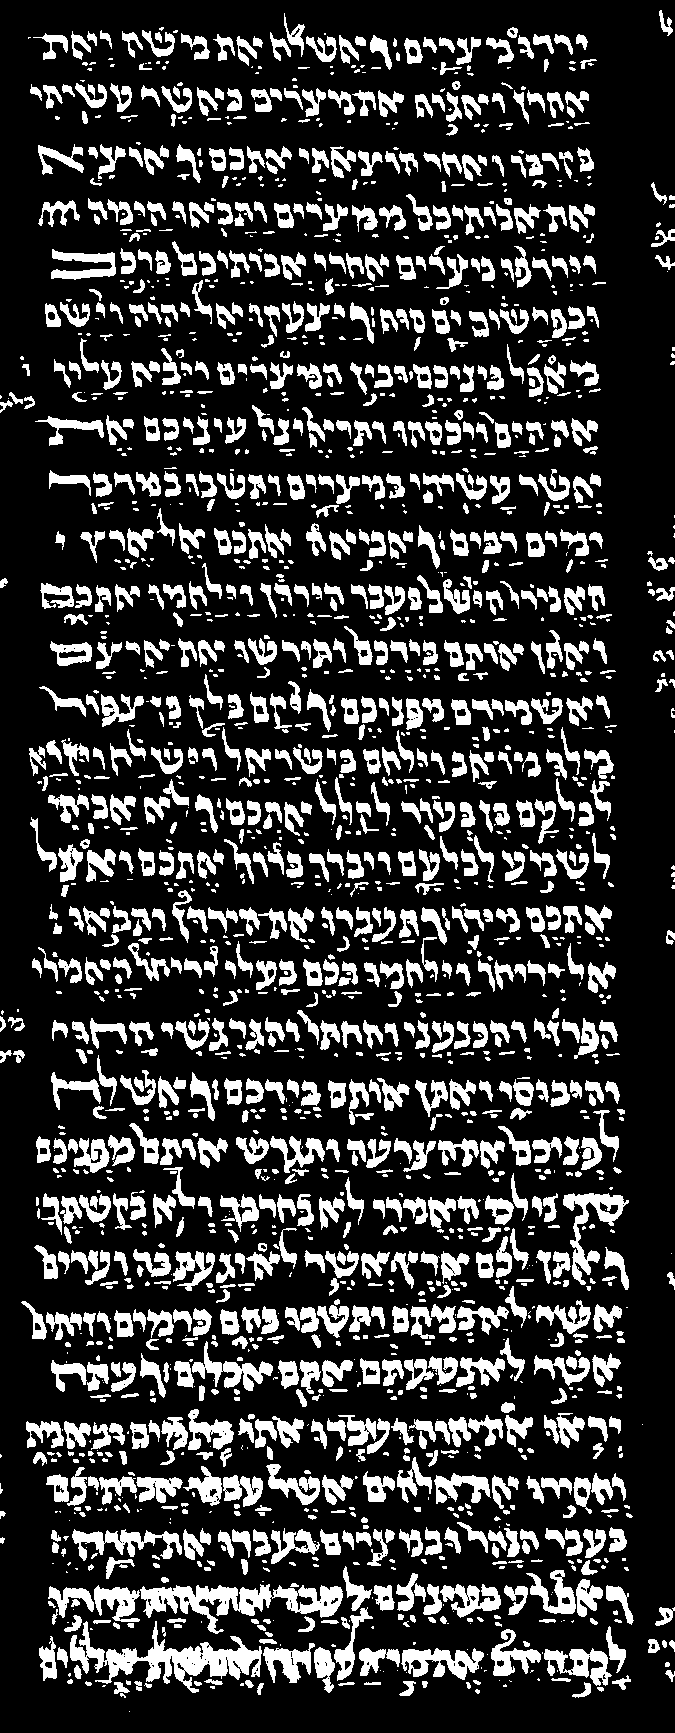 ירדו מצרים: ואשלח את משה ואת
אהרן ואגף את מצרים כאשר עשיתי
בקרבו ואחר הוצאתי אתכם: ואוציא
את אבותיכם ממצרים ותבאו הימה
וירדפו מצרים אחרי אבותיכם ברכב
ובפרשים ים סוף: ויצעקו אל יהוה וישם
מאפל ביניכם ובין המצרים ויבא עליו
את הים ויכסהו ותראינה עיניכם את
אשר עשיתי במצרים ותשבו במדבר
ימים רבים: ואביאה אתכם אל ארץ
האמרי היושב בעבר הירדן וילחמו אתכם
ואתן אותם בידכם ותירשו את ארצם
ואשמידם מפניכם: ויקם בלק בן צפור
מלך מואב וילחם בישראל וישלח ויקרא
לבלעם בן בעור לקלל אתכם: ולא אביתי
לשמע לבלעם ויברך ברוך אתכם ואצל
אתכם מידו: ותעברו את הירדן ותבאו
אל יריחו וילחמו בכם בעלי יריחו האמרי
הפרזי והכנעני והחתי והגרגשי החוי
והיבוסי ואתן אותם בידכם: ואשלח
לפניכם את הצרעה ותגרש אותם מפניכם
שני מלכי האמרי לא בחרבך ולא בקשתך:
ואתן לכם ארץ אשר לא יגעת בה וערים
אשר לא בניתם ותשבו בהם כרמים וזיתים
אשר לא נטעתם אתם אכלים: ועתה
יראו את יהוה ועבדו אתו בתמים ובאמת
והסירו את אלהים אשר עבדו אבותיכם
בעבר הנהר ובמצרים ועבדו את יהוה:
ואם רע בעיניכם לעבד את יהוה בחרו
לכם היום את מי תעבדון אם את אלהים